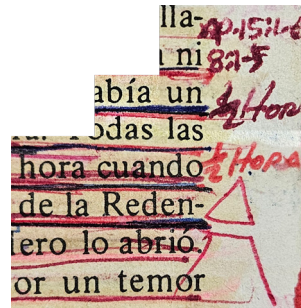 lla-
ni
abía un
Todas las
hora cuando
de la Reden-
ero lo abrió.
or un temor
8:1-5
½ HORA
½ HORA